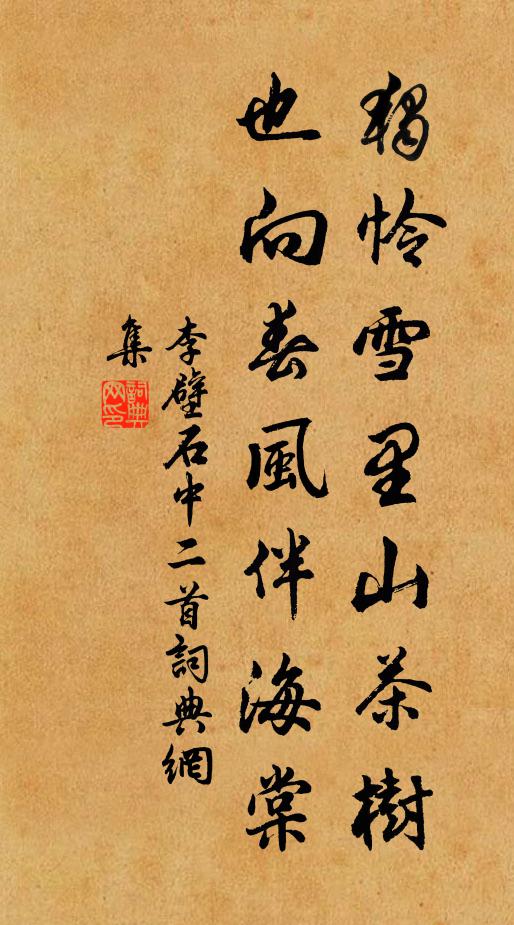 獨怜雪里山茶樹
也向春風伴海棠
李壁石中二首詞典網
集
詞典
网印